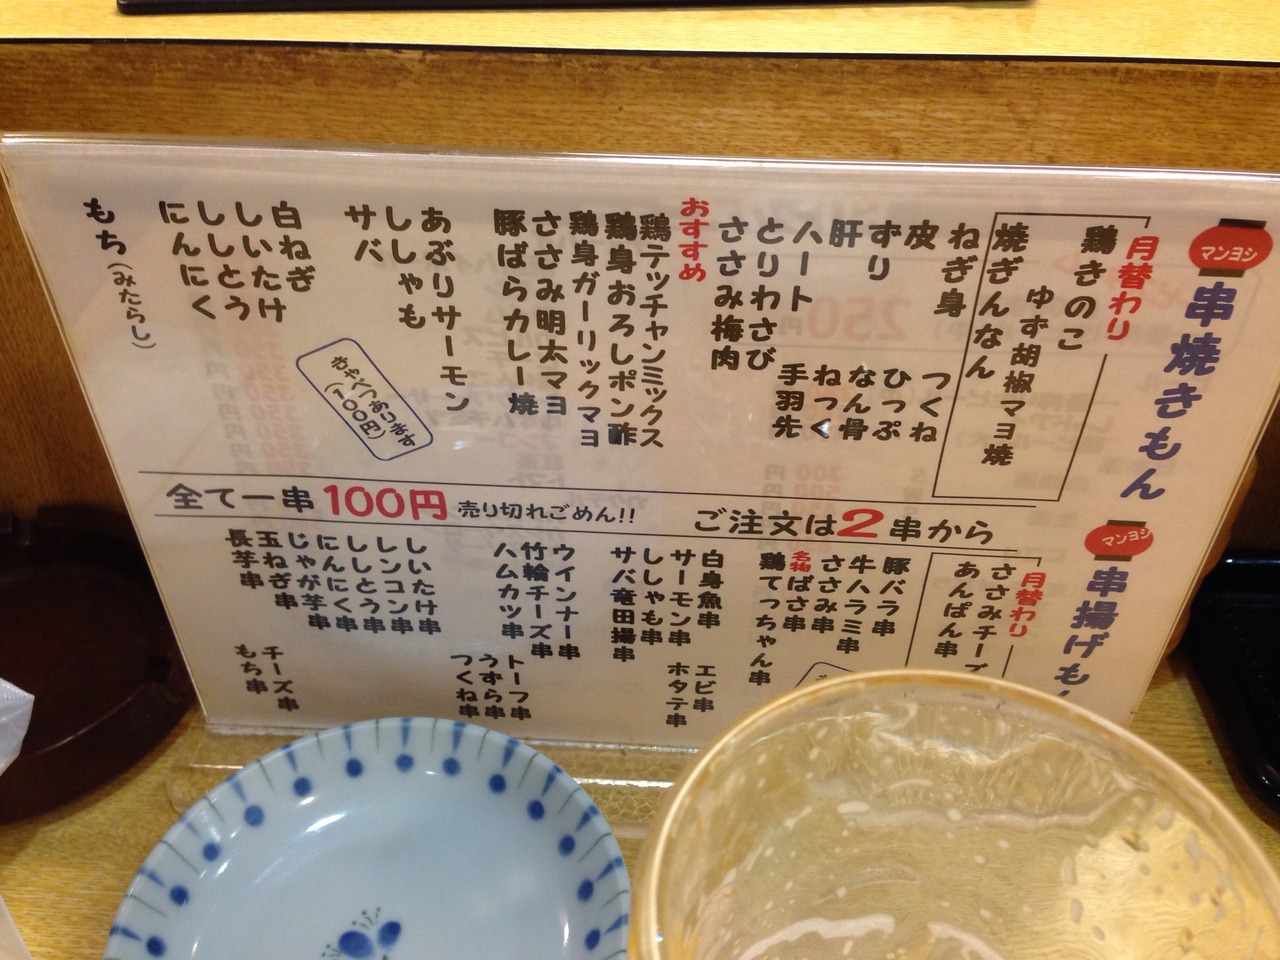 マンヨシ
串焼きもん
月替わり
鶏きのこ
ゆず胡椒マヨ焼
焼ぎんなん
ねぎ身
皮
ずり
肝
ハート
とりわさび
ささみ梅肉
つくね
ひっぷ
なん骨
ねっく
手羽先
おすすめ
鶏テッチャンミックス
鶏身おろしポン酢
鶏身ガーリックマヨ
ささみ明太マヨ
豚ばらカレー焼
あぶりサーモン
ししゃも
サバ
白ねぎ
しいたけ
ししとう
にんにく
もち(みたらし)
きゃべつあります
(100円)
全て一串100円 売り切れごめん!! ご注文は2串から
マンヨシ
串揚げも
月替わり
ささみチーズ
あんぱん串
豚バラ串
牛ハラミ串
ささみ串
名物ばさ串
鶏てっちゃん串
白身魚串
サーモン串
ししゃも串
サバ竜田揚串
エビ串
ホタテ串
ウインナー串
竹輪チーズ串
ハムカツ串
トーフ串
うずら串
つくね串
しいたけ串
レンコン串
ししとう串
にんにく串
じゃが芋串
玉ねぎ串
長芋串
チーズ串
もち串